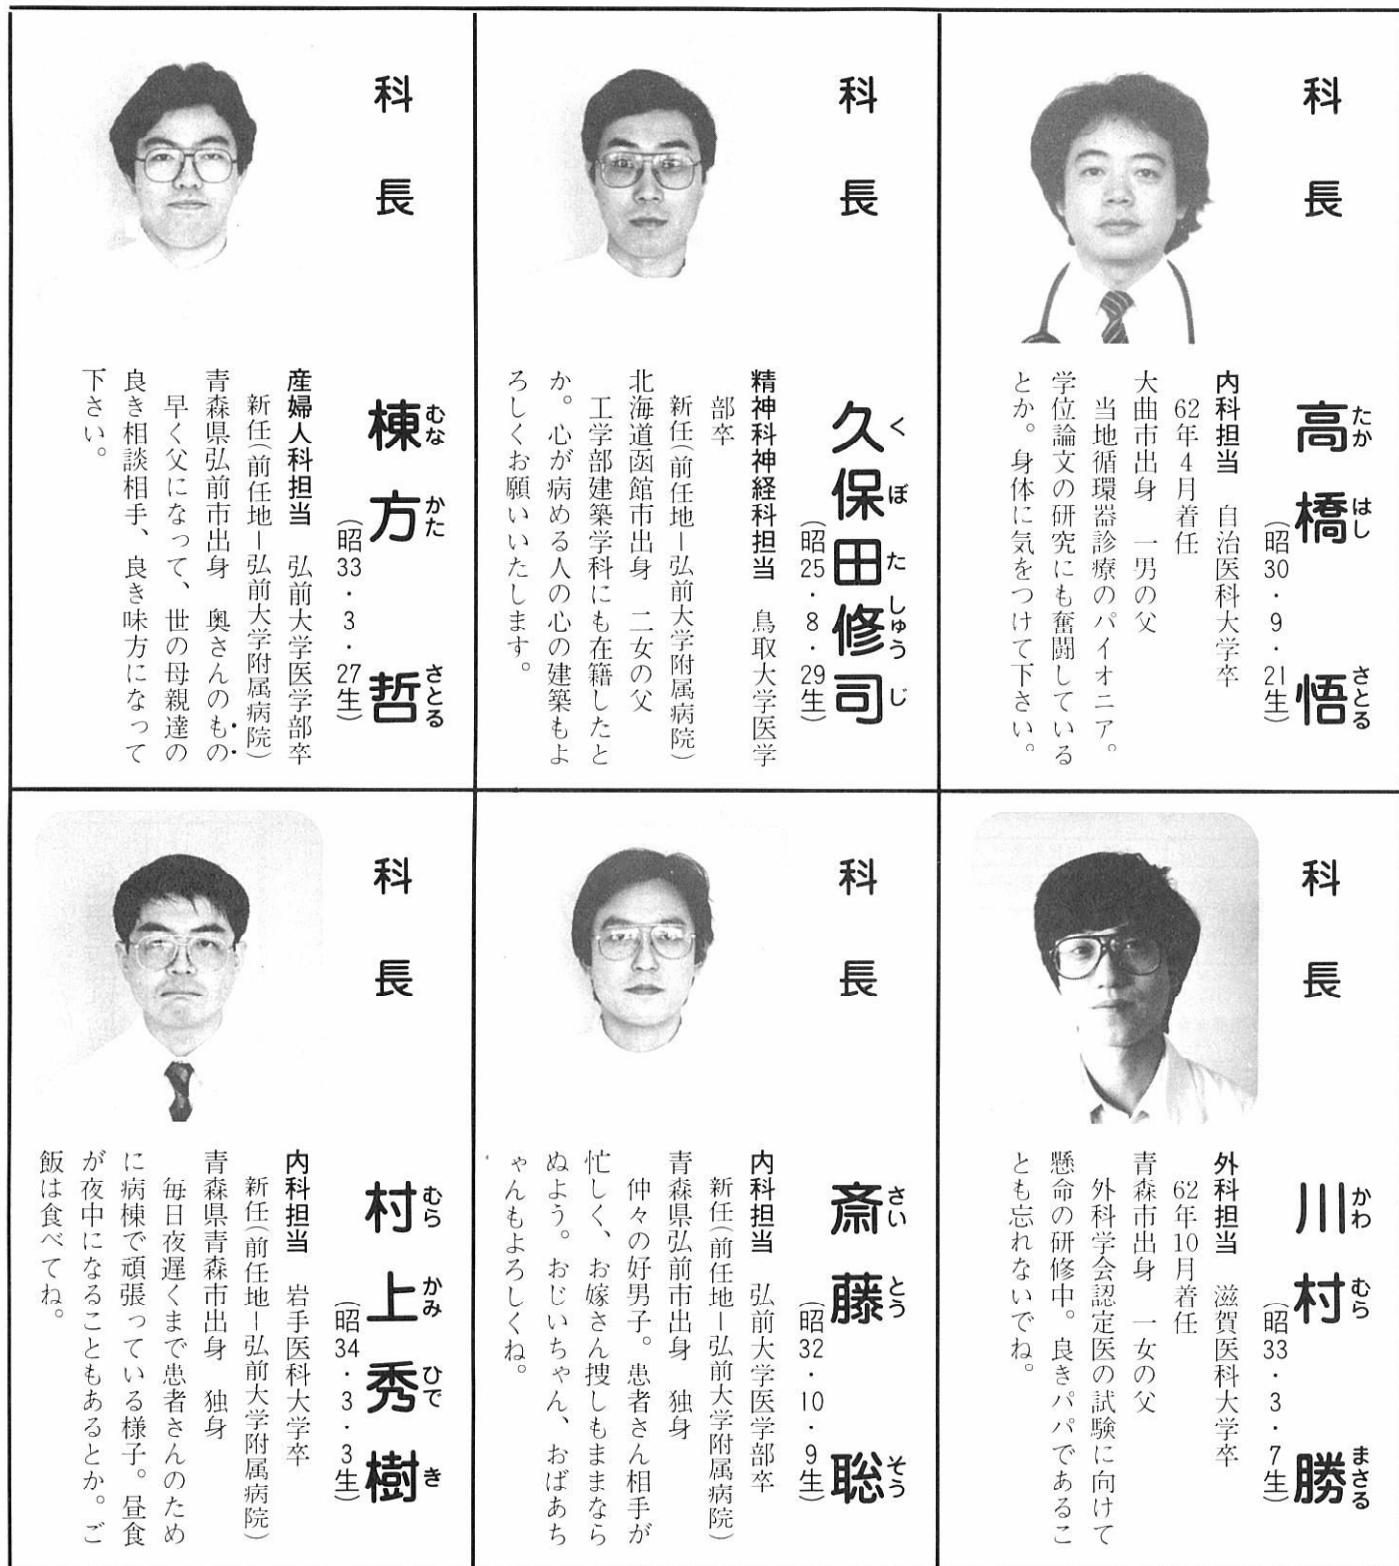 科長
高橋 悟
たか はし さとる
(昭30・9・21生)
内科担当 自治医科大学卒
62年4月着任
大曲市出身 一男の父
当地循環器診療のパイオニア。
学位論文の研究にも奮闘している
とか。身体に気をつけて下さい。
科長
久保田修司
く ぼ た しゅう じ
(昭25・8・29生)
精神科神経科担当 鳥取大学医学
部卒
新任(前任地ー弘前大学附属病院)
北海道函館市出身 二女の父
工学部建築学科にも在籍したと
か。心が病める人の心の建築もよ
ろしくお願いいたします。
科長
棟方 哲
むな かた さとる
(昭33・3・27生)
産婦人科担当 弘前大学医学部卒
新任(前任地ー弘前大学附属病院)
青森県弘前市出身 奥さんのもの
早く父になって、世の母親達の
良き相談相手、良き味方になって
下さい。
科長
川村 勝
かわ むら まさる
(昭33・3・7生)
外科担当 滋賀医科大学卒
62年10月着任
青森市出身 一女の父
外科学会認定医の試験に向けて
懸命の研修中。良きパパであるこ
とも忘れないでね。
科長
斎藤 聡
さい とう そう
(昭32・10・9生)
内科担当 弘前大学医学部卒
新任(前任地ー弘前大学附属病院)
青森県弘前市出身 独身
仲々の好男子。患者さん相手が
忙しく、お嫁さん捜しもままなら
ぬよう。おじいちゃん、おばあち
ゃんもよろしくね。
科長
村上秀樹
むら かみ ひで き
(昭34・3・3生)
内科担当 岩手医科大学卒
新任(前任地ー弘前大学附属病院)
青森県青森市出身 独身
毎日夜遅くまで患者さんのため
に病棟で頑張っている様子。昼食
が夜中になることもあるとか。ご
飯は食べてね。